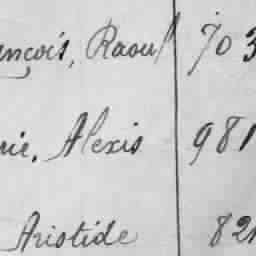 ançois, Raoul 703
rie, Alexis 981
Aristide 821